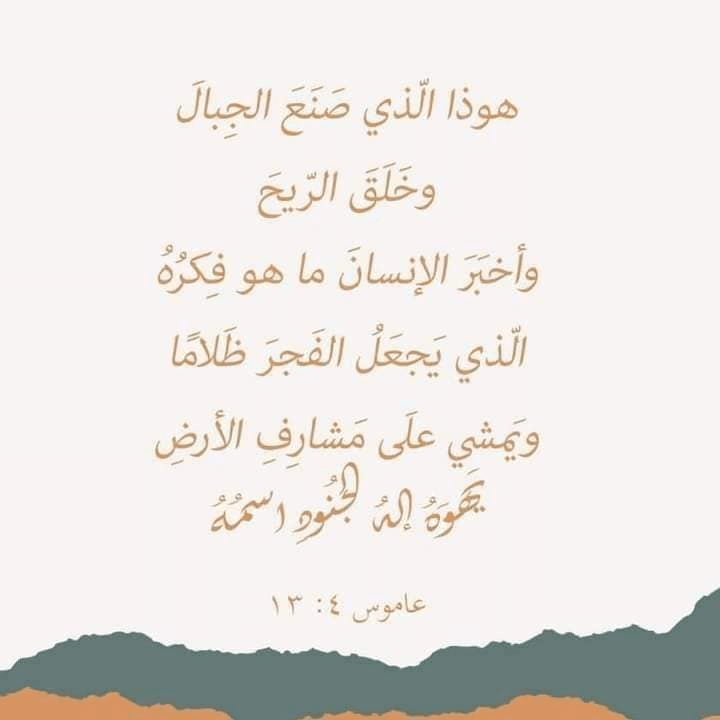 هوذا الّذي صَنَعَ الجِبالَ
وخَلَقَ الرّيحَ
وأخبَرَ الإنسانَ ما هو فِكرُهُ
الّذي يَجعَلُ الفَجرَ ظَلامًا
ويَمشي علَى مَشارِفِ الأرضِ
يَهوَهُ إلهُ الجُنُودِ اسمُهُ
عاموس ٤: ١٣